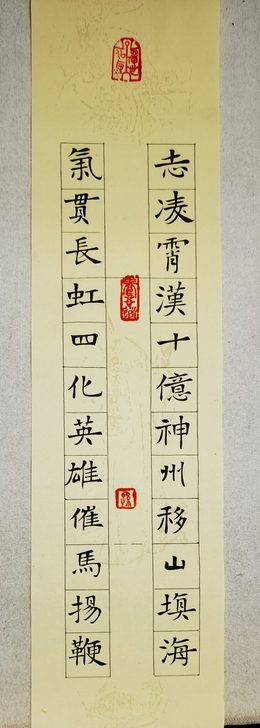 志凌霄漢十億神州移山填海
氣貫長虹四化英雄催馬揚鞭